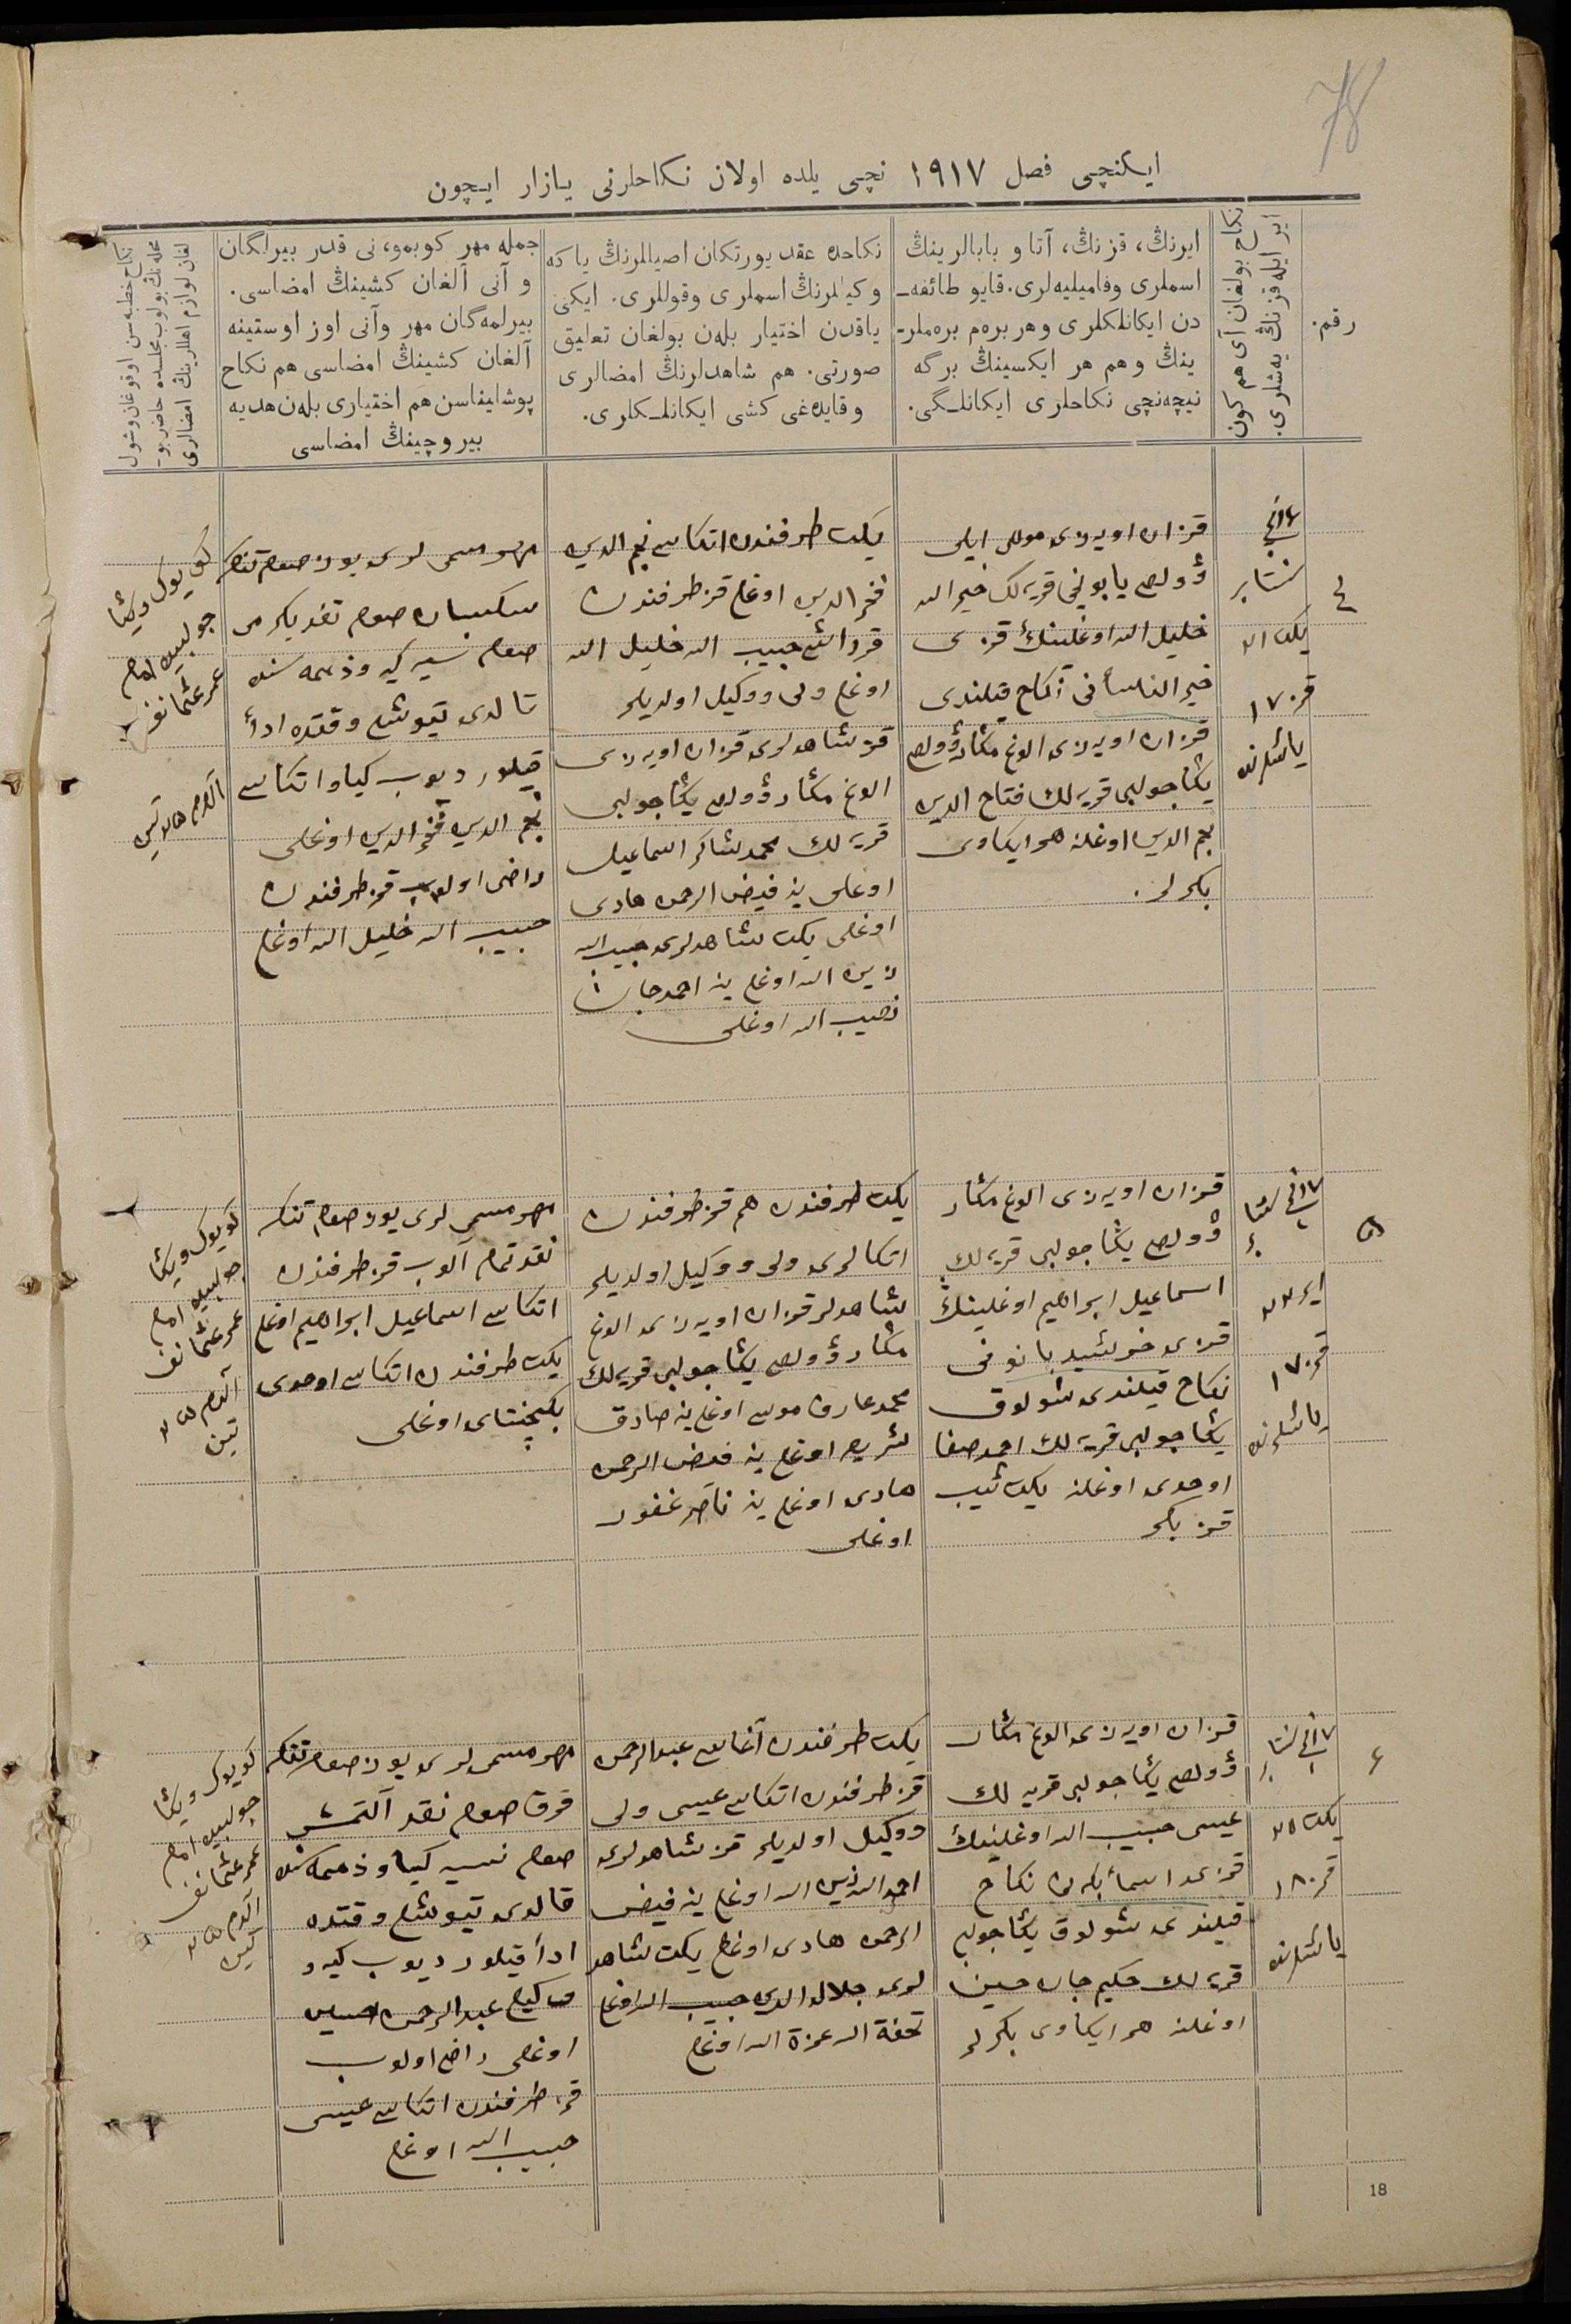 78
ایکنچی فصل ۱۹۱۷ نچی یلده اولان نکاحلرنی یازار ایچون
رقم.
نکاح بولغان آی هم کون
ایر ایله قزنڭ یه‌شلری.
ایرنڭ، قزنڭ، آتا و بابالرینڭ
اسملری وفامیلیه‌لری. قایو طائفه‌ـ
دن ایکانلکلری وهر بره‌م بره‌ملرـ
ینڭ وهم هر ایکسینڭ برگه
نیچه‌نچی نکاحلری ایکانلـگی.
نکاحده عقد یورتکان اصیللرنڭ یا که
وکیللرنڭ اسملری وقوللری. ایکی
یاقدن اختیار بله‌ن بولغان تعلیق
صورتی. هم شاهدلرنڭ امضالری
وقایده‌غی کشی ایکانلـکلری.
جمله مهر کوبمو، نی قدر بیرلگان
و آنی آلغان کشینڭ امضاسی.
بیرلمه‌گان مهر وآنی اوز اوستینه
آلغان کشینڭ امضاسی هم نکاح
پوشلیناسن هم اختیاری بله‌ن هدیه
بیروچینڭ امضاسی
نکاح خطبه‌سن اوقوغان وشول
محله‌نڭ بولوب مجلسده حاضر بوـ
لغان لوازم اهالرینڭ امضالری
۴
سنتابر
یکت
قز ۱۷
یاشلرنده
قزان اویه‌زی
ۋولصی یابونچی قریه‌لک خیرالله
خلیل الله اوغلینڭ قزی
خیرالنسأنی نکاح قیلندی
قزان اویه‌زی الوغ مڭار ۋولصی
یڭا جولبی قریه‌لک فتاح الدین
نجم الدین اوغلنه هر ایکاوی
بکرلر.
یکت طرفندن اتکاسی نجم الدین
فخرالدین اوغلی قز طرفندن
قرداشی حبیب الله خلیل الله
اوغلی ولی ووکیل اولدیلر
قز شاهدلری قزان اویه‌زی
الوغ مڭار ۋولصی یڭا جولبی
قریه‌لک محمدشاکر اسماعیل
اوغلی ینه فیض الرحمن هادی
اوغلی یکت شاهدلری حبیب الله
الله اوغلی ینه احمدجان
نصیب الله اوغلی
مهر مسمی لری یوز صوم تنکه
سکسان صوم نقد یکرمی
صوم نسیه کیه و ذمه سنده
قالدی تیوشلی وقتده ادأ
قیلور دیوب کیاو اتکاسی
نجم الدین فخرالدین اوغلی
راضی اولوب قز طرفندن
حبیب الله خلیل الله اوغلی
جولبیسی امام
عمر عثمانف
آلدم
۵
قز ۱۷
یاشلرنده
قزان اویه‌زی الوغ مڭار
ۋولصی یڭا جولبی قریه‌لک
اسماعیل ابراهیم اوغلینڭ
قزی خرشید بانو نی
نکاح قیلندی شولوق
یڭا جولبی قریه‌لک احمدصفا
اوحدی اوغلنه یکت ثیب
قز بکر
یکت طرفندن هم قز طرفندن
اتکالری ولی ووکیل اولدیلر
شاهدلر قزان اویه‌زی الوغ
مڭار ۋولصی یڭا جولبی قریه‌لک
محمدعارف موسی اوغلی ینه صادق
شریف اوغلی ینه فیض الرحمن
هادی اوغلی ینه ناصر غفور
اوغلی
مهر مسمی لری یوز صوم تنکه
نقد تمام آلوب قز طرفندن
اتکاسی اسماعیل ابراهیم اوغلی
یکت طرفندن اتکاسی اوحدی
بکیچنتای اوغلی
جولبیسی امام
عمر عثمانف
آلدم
تین
۶
یکت
قز ۱۸
یاشلرنده
قزان اویه‌زی الوغ مڭار
ۋولصی یڭا جولبی قریه لک
عیسی حبیب الله اوغلینڭ
قزی اسمأبکه نی نکاح
قیلندی شولوق یڭا جولبی
قریه لک حکیم جان حسین
اوغلنه هر ایکاوی بکرلر
یکت طرفندن آغاسی عبدالرحمن
قز طرفندن اتکاسی عیسی ولی
ووکیل اولدیلر قز شاهدلری
الله اوغلی ینه فیض
الرحمن هادی اوغلی یکت شاهد
لری جلال الدین حبیب الله اوغلی
تحفة الله عزة الله اوغلی
مهر مسمی لری یوز صوم تنکه
قرق صوم نقد آلتمش
صوم نسیه کیاو ذمه سنده
قالدی تیوشلی وقتده
ادأ قیلور دیوب کیه‌و
وکیلی عبدالرحمن حسین
اوغلی راضی اولوب
قز طرفندن اتکاسی عیسی
حبیب الله اوغلی
جولبیسی امام
عمر عثمانف
آلدم
18